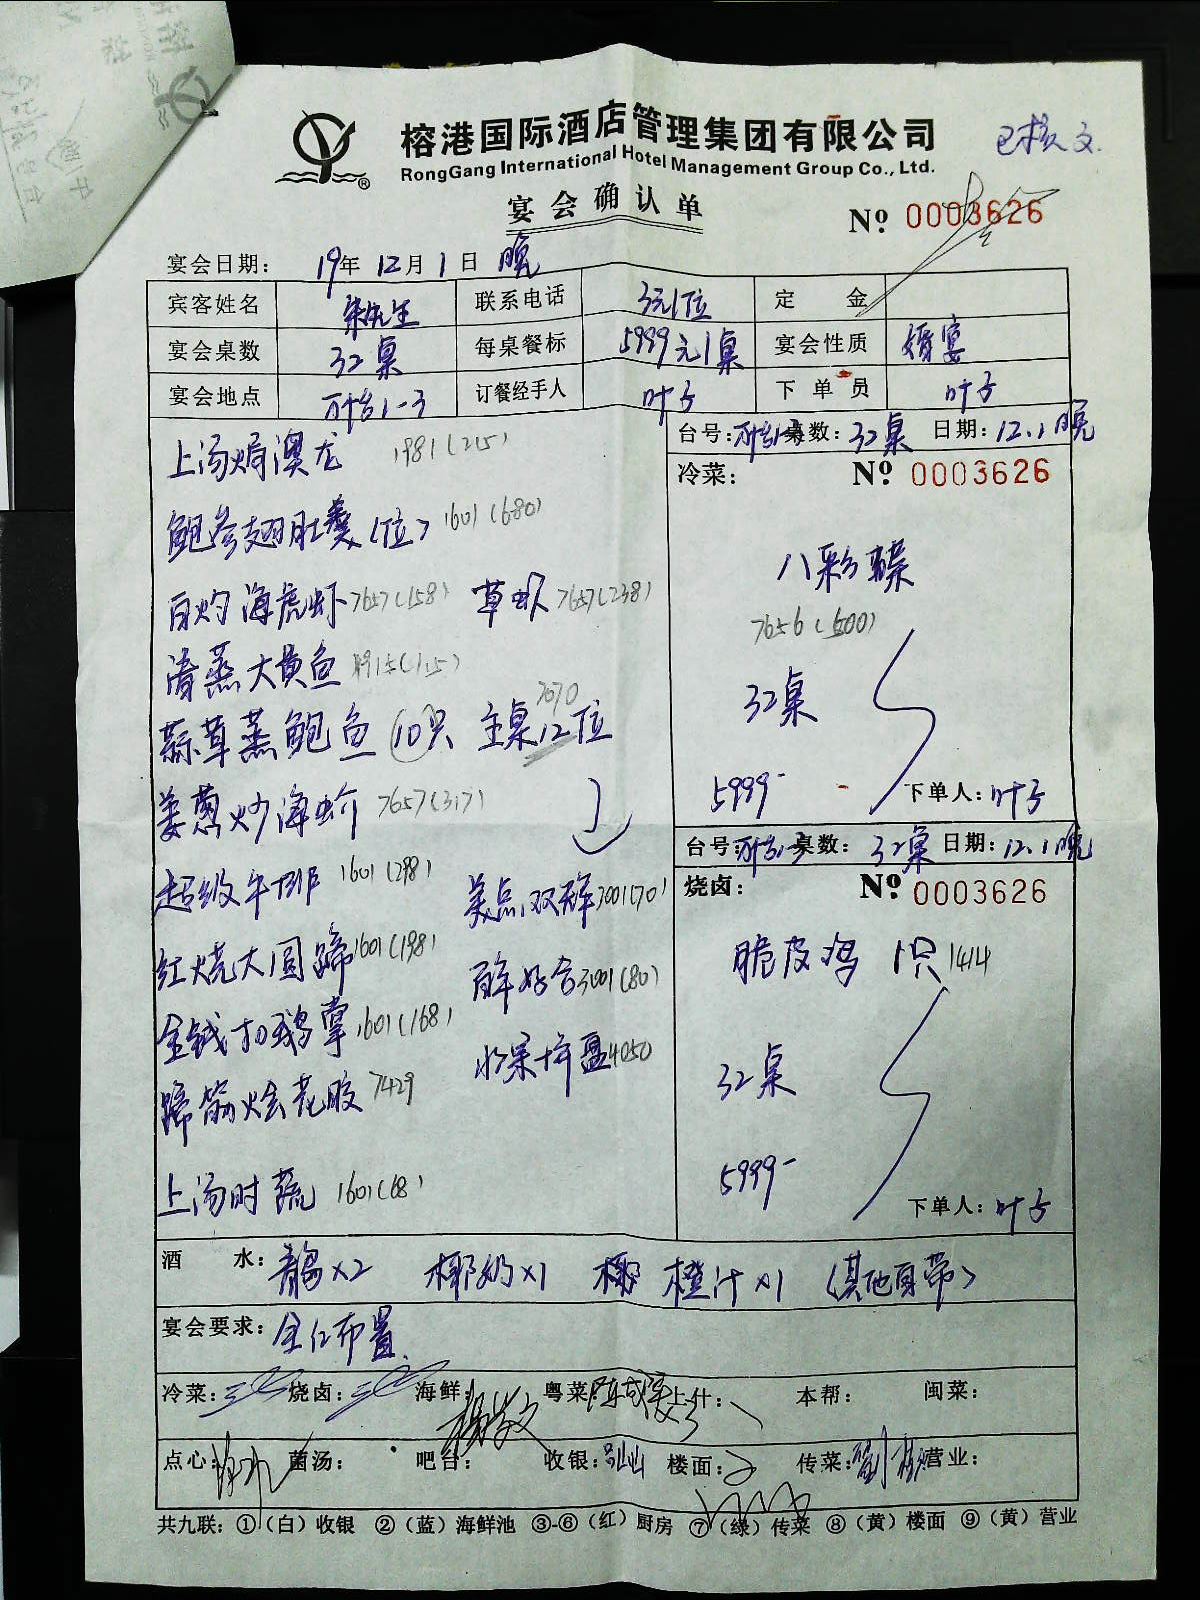 榕港国际酒店管理集团有限公司
RongGang International Hotel Management Group Co., Ltd.
已核
宴会确认单
№ 0003626
宴会日期: 19年 12月 1日 晚
宾客姓名 宋先生 联系电话 3元1位 定金
宴会桌数 32桌 每桌餐标 5999元1桌 宴会性质 婚宴
宴会地点 1-3 订餐经手人 叶子 下单员 叶子
台号: 桌数: 32桌 日期: 12.1晚
上汤焗澳龙 1981(215)
冷菜: № 0003626
鲍参翅肚羹(位) 1601(680)
八彩碟
白灼海虎虾 7657(158) 草虾 7657(238)
7656(600)
清蒸大黄鱼
32桌
7670
蒜茸蒸鲍鱼 10只 主桌12位
5999-
下单人: 叶子
姜葱炒海蟹 7657(317)
台号: 桌数: 32桌 日期: 12.1晚
超级牛排 1601(298) 美点双辉 3001(70)
烧卤: № 0003626
红烧大圆蹄 1601(198) 百年好合 3001(80)
脆皮鸡 1只 1414
金钱扣鹅掌 1601(168) 水果拼盘 4050
32桌
蹄筋烩花胶 7429
5999-
上汤时蔬 1601(68)
下单人: 叶子
酒水: x2 椰奶x1 橙汁x1 (其他自带)
宴会要求: 全红布置
冷菜: 烧卤: 海鲜: 粤菜: 上什: 本帮: 闽菜:
点心: 菌汤: 吧台: 收银: 楼面: 传菜: 营业:
共九联: ①(白)收银 ②(蓝)海鲜池 ③-⑥(红)厨房 ⑦(绿)传菜 ⑧(黄)楼面 ⑨(黄)营业